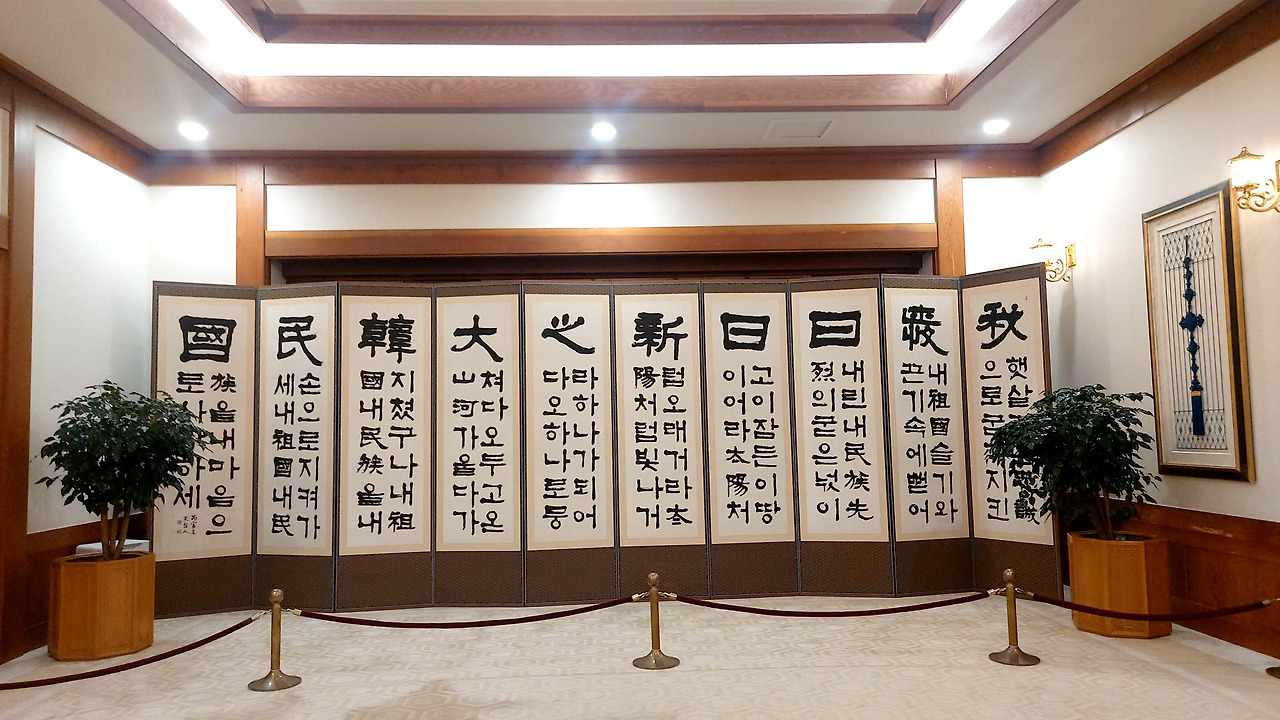 秋
햇살
으로굳
지킨
내祖國슬기와
끈기속에뻗어
日
내린내民族先
烈의굳은넋이
日
고이잠든이땅
이어라太陽처
新
럼오래거라太
陽처럼빛나거
之
라하나가되어
다오하나로뭉
大
쳐다오두고온
山河가을다가
韓
지쳤구나내祖
國내民族을내
民
손으로지켜가
세내祖國내民
國
族을내마음으
로사 하세